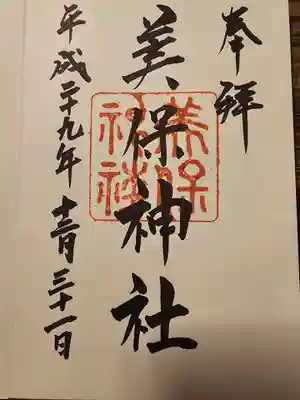 奉拝
美保神社
美保
神社
平成二十九年十二月三十一日